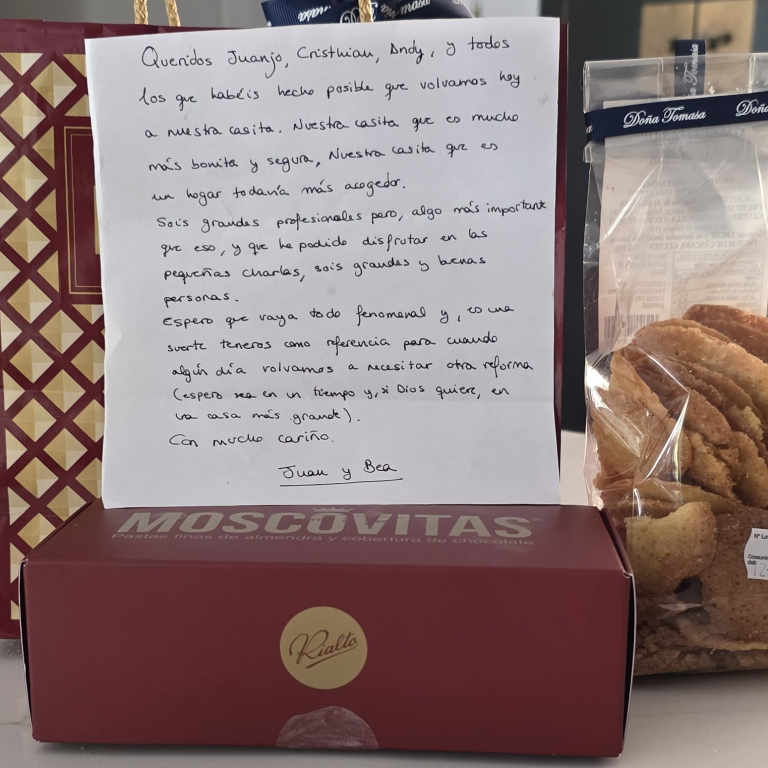 Queridos Juanjo, Cristhian, Andy, y todos
los que habéis hecho posible que volvamos hoy
a nuestra casita. Nuestra casita que es mucho
más bonita y segura, Nuestra casita que es
un hogar todavía más acogedor.
Sois grandes profesionales pero, algo más importante
que eso, y que he podido disfrutar en las
pequeñas charlas, sois grandes y buenas
personas.
Espero que vaya todo fenomenal y, es una
suerte teneros como referencia para cuando
algún día volvamos a necesitar otra reforma
(espero sea en un tiempo y, si Dios quiere, en
una casa más grande).
Con mucho cariño.
Juan y Bea
MOSCOVITAS
Pastas finas de almendra y cobertura de chocolate
Rialto
Doña Tomasa
Doña
Nº Lo